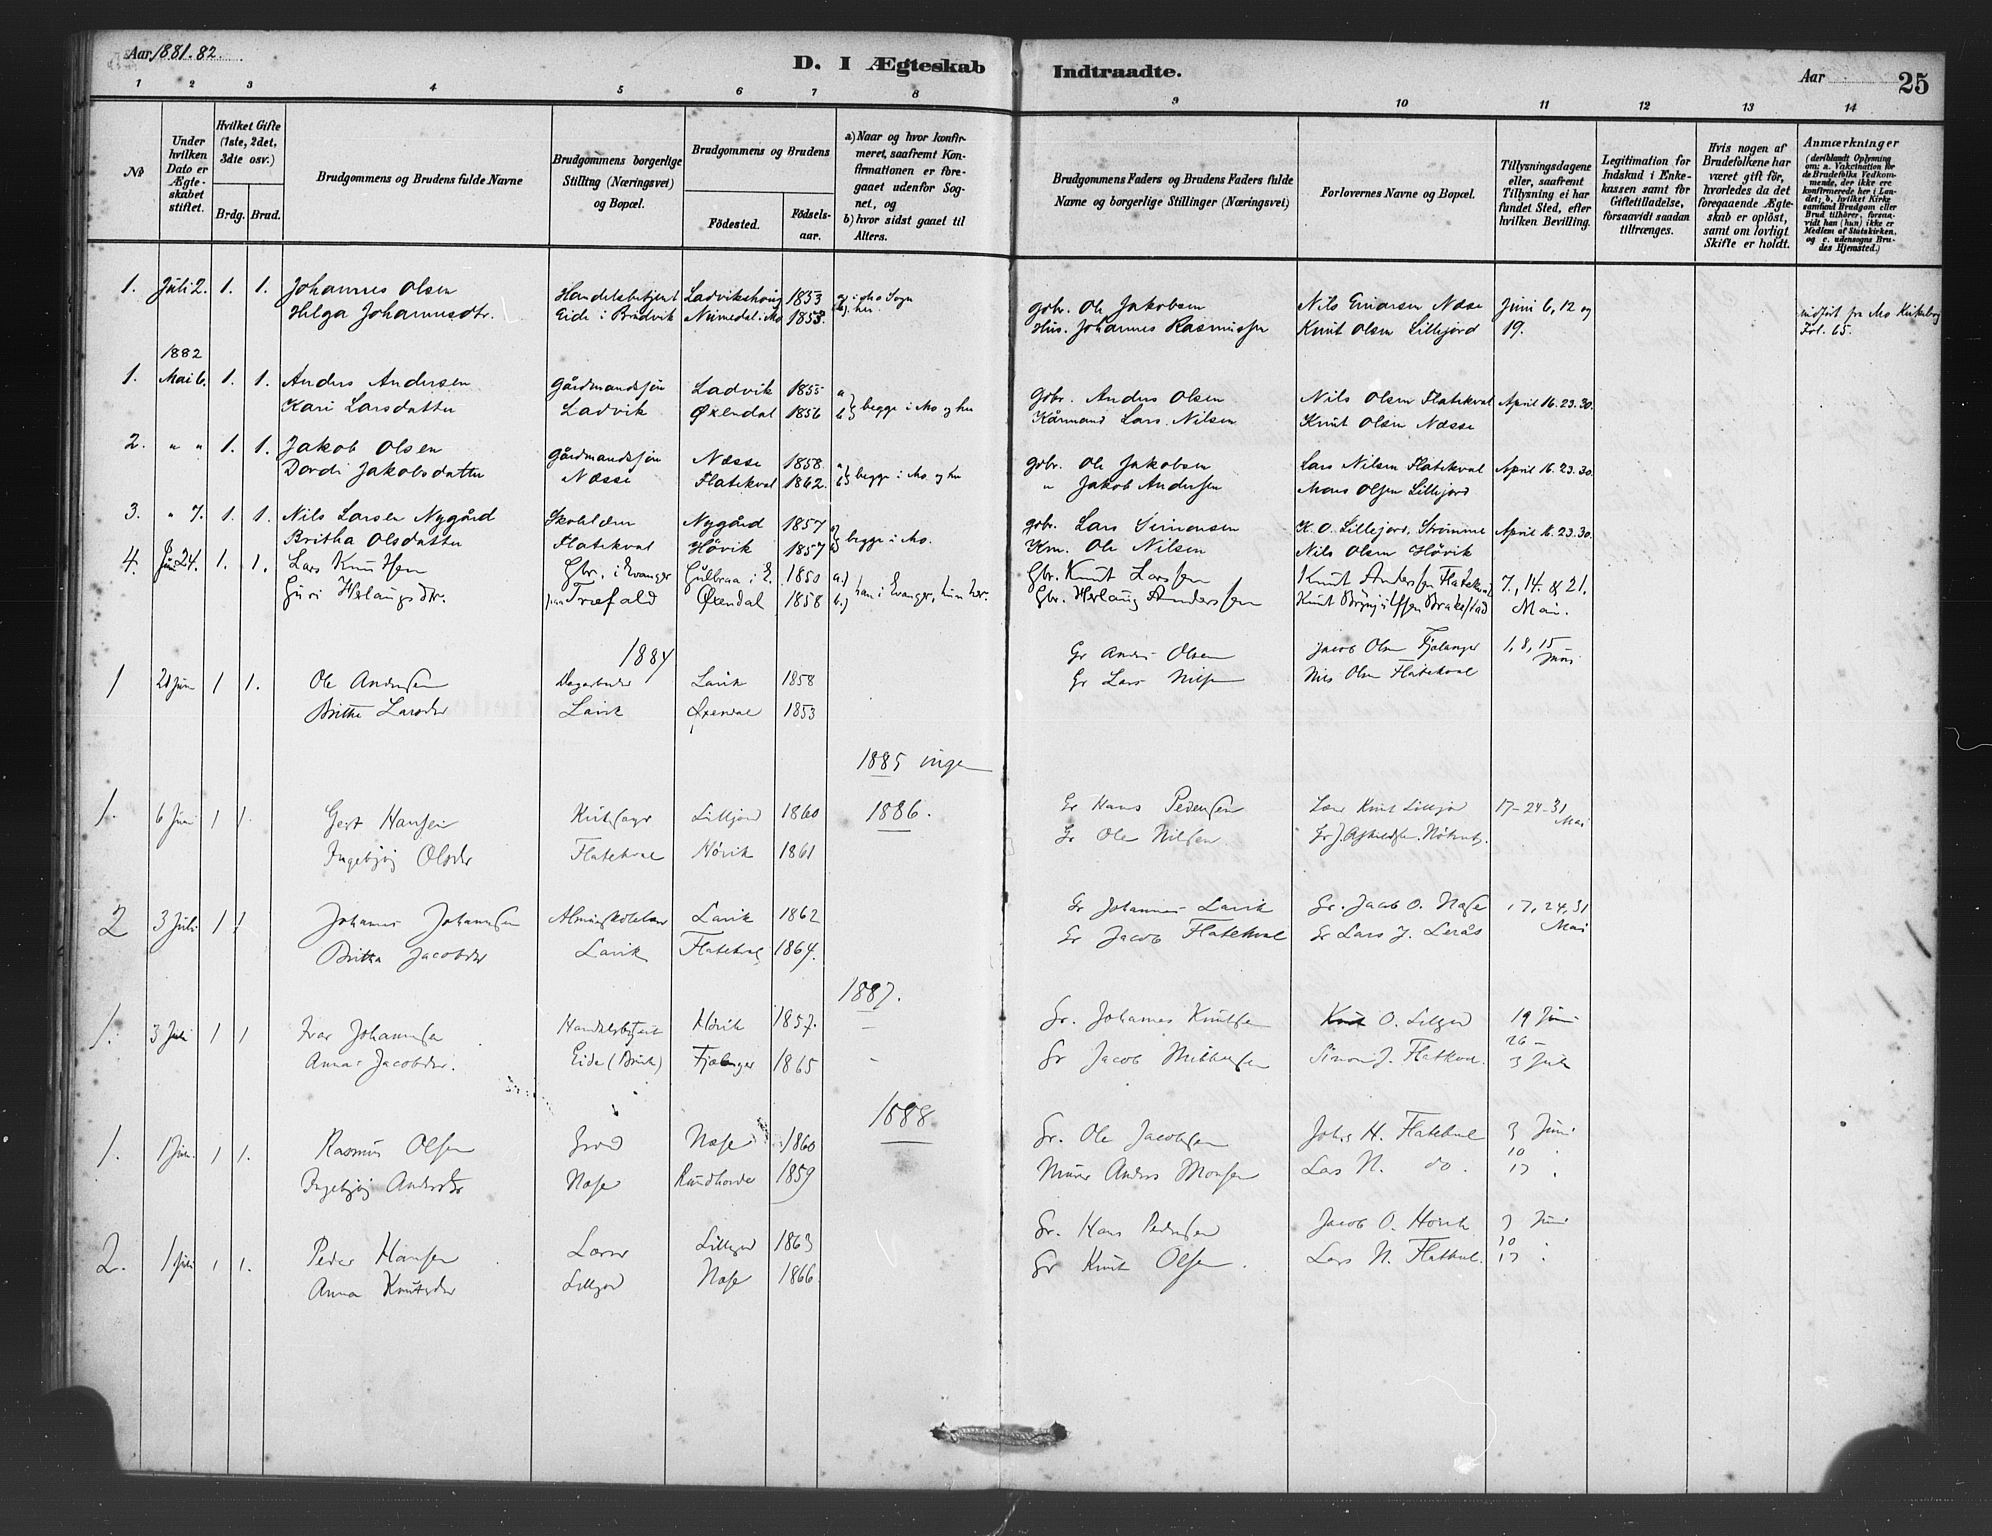 Aar 1881.82.
D. I Ægteskab Indtraadte.
Aar 25
1 2 3 4 5 6 7 8 9 10 11 12 13 14
No
Under hvilken Dato er Ægteskabet stiftet.
Hvilket Gifte (1ste, 2det, 3die osv.)
Brdg. Brud.
Brudgommens og Brudens fulde Navne
Brudgommens borgerlige Stilling (Næringsvei) og Bopæl.
Brudgommens og Brudens
Födested.
Födselsaar.
a) Naar og hvor konfirmeret, saafremt Konfirmationen er foregaaet udenfor Sognet, og
b) hvor sidst gaaet til Alters.
Brudgommens Faders og Brudens Faders fulde Navne og borgerlige Stillinger (Næringsvei)
Forlovernes Navne og Bopæl.
Tillysningsdagene eller, saafremt Tillysning ei har fundet Sted, efter hvilken Bevilling.
Legitimation for Indskud i Enkekassen samt for Giftetilladelse, forsaavidt saadan tiltrænges.
Hvis nogen af Brudefolkene har været gift för, hvorledes da det foregaaende Ægteskab er oplöst, samt om lovligt Skifte er holdt.
Anmærkninger
(deriblandt Oplysning om: a. Vakcination for de Brudefolks Vedkommende, der ikke ere konfirmerede her i Landet; b. hvilket Kirkesamfund Brudgom eller Brud tilhörer, forsaavidt han (hun) ikke er Medlem af Statskirken, og c. udensogns Brudes Hjemsted.)
1. Juli 2. 1. 1. Johannes Olsen Handelsbetjent Ladvikshoug 1853 a) i Mo Sogn Gbr. Ole Jakobsen Nils Einarsen Næsse Juni 6, 12 og indført fra Mo Kirkebog
Helga Johannesdtr. Eide i Brudvik Nimedal i Mo 1858. b). her Hus. Johannes Rasmussen Knut Olsen Lillejord 19. Fol. 65.
1882
1. Mai 6. 1. 1. Anders Andersen Gårdmandssøn Ladvik 1855 a Gbr. Anders Olsen Nils Olsen Flatekval April 16.23.30.
Kari Larsdatter Ladvik Øxendal 1856 b begge i Mo og her Kårmand Lars Nilsen Knut Olsen Næsse
2. " " 1. 1. Jakob Olsen Gårdmandssøn Næsse 1858. a Gbr. Ole Jakobsen Lars Nilsen Flatekval April 16.23.30.
Dordi Jakobsdatter Næsse Flatekval 1862. b begge i Mo og her " Jakob Andersen Mons Olsen Lillejord
3. " 7. 1. 1. Nils Larsen Nygård Skolelærer Nygård 1857 a Gbr. Lars Simonsen K. O. Lillejord, Strømme April 16.23.30.
Britha Olsdatter Flatekval Høvik 1857 b begge i Mo. Km. Ole Nilsen Nils Olsen Høvik
4. Juni 24. 1. 1. Lars Knutsen Gbr. i Evanger Gulbraa i E. 1850 a.) Gbr. Knut Larssen Knut Anderssen Flatekval 7., 14. & 21.
Guri Herlaugsdtr. Træfald Øxendal 1858 b.) han i Evanger, hun her. Gbr. Herlaug Anderssen Knut Brynjulfsen Brakestad Mai.
1884
1 Juni 1 1. Ole Andersen Lavik 1858 Gr Anders Olsen Jacob Olsen Fjelanger 1, 8, 15 Juni
Britha Larsdtr Lavik Øxendal 1853 Gr Lars Nilsen Nils Olsen Flatekval
1885 ingen
1886.
1. 6 Juni 1 1. Gert Hansen Lillejord 1860 Gr Hans Pedersen Lærer Knut Lillejord 17-24-31 Mai
Ingebjørg Olsdtr Flatekval Høvik 1861 Gr Ole Nilsen
2 3 Juli 1 1 Johannes Johannessen Lavik 1862 Gr Johannes Lavik Gr. Jacob O. Næse 17, 24, 31 Mai
Britha Jacobsdtr Lavik Flatekval 1864. Gr Jacob Flatekval Gr Lars J. Lerås
1887.
1. 3 Juli 1 1 Ivar Johannessen Handelsbetjent Hövik 1857. – Gr. Johannes Knutsen Knut O. Lillejord 19 Juni
26 –
Anna Jacobsdtr. Eide (Bruvik) Fjelanger 1865 – Gr Jacob Simon J. Flatekval 3 Juli
1888
1. 1 Juli 1 1. Rasmus Olsen Næse 1860 Gr. Ole Jacobsen Johs H. Flatekval 3 Juni
10 "
Ingebjørg Andersdtr Næse Rundhovde 1859 Murer Anders Monsen Lars N. do. 17 "
2. 1 Juli 1 1. Peder Hansen Lærer Lillejord 1863 Gr. Hans Pedersen Jacob O. Hövik 3 Juni
10
Anna Knutsdtr Lillejord Næse 1866 Gr Knut Olsen Lars N. Flatekval. 17 "